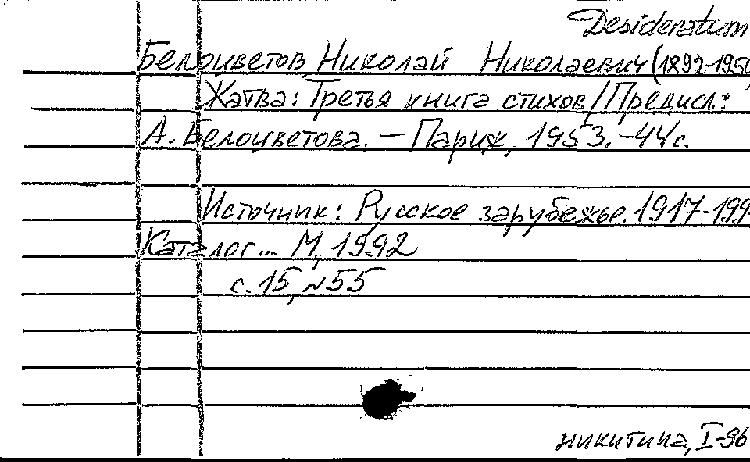 Desideratum
Белоцветов Николай Николаевич (1892-1950
Жатва: Третья книга стихов / Предисл.:
А. Белоцветова. – Париж, 1953. – 44 с.
Источник: Русское зарубежье. 1917-199
Каталог... М, 1992
с. 15, №55
никитина, I-96